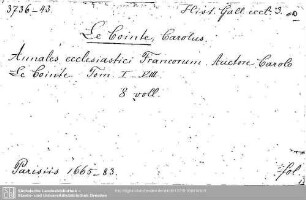 3736-43.
Hist. Gall. eccl. 3.
Le Cointe, Carolus.
Annales ecclesiastici Francorum. Auctore Carolo
Le Cointe. Tom. I-VIII.
8 voll.
Parisiis 1665-83.
Fol.
Sächsische Landesbibliothek -
Staats- und Universitätsbibliothek Dresden